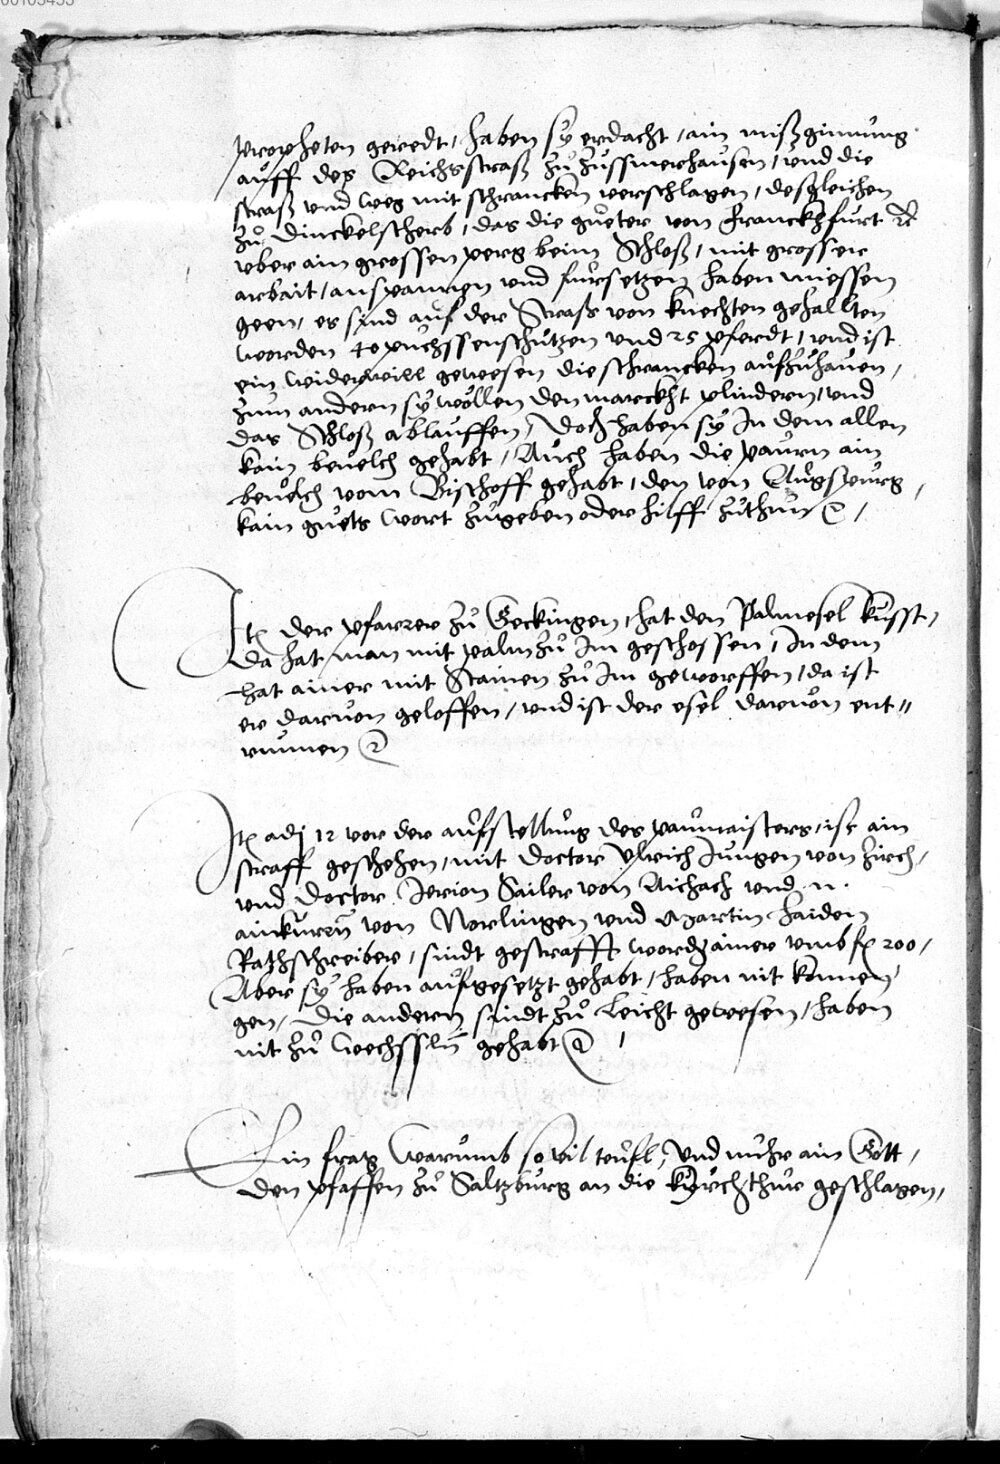 propheten geredt, haben sÿ erdacht, ain mißginnung
auff des Reichsstraß zů Zusmerhausen, vnd die
straß vnd weg mit schrancken verschlagen, desgleichen
zů Dinckelscherb, das die gůeter von Franckhfurt ꝛc
vber ain grossen perg beim Schloß, mit grosser
arbait, anspannen vnd fürsetzen haben miessen
geen, es sind auf der Strass von knechten gehallten
worden 40 püchssenschützen vnd 25 pferdt, vnd ist
ein widerwill gewesen die schrancken aůfzůhaůen,
zum andern sÿ wöllen den marckht plindern, vnd
das Schloß ablauffen, Doch haben sÿ In dem allen
kain beuelch gehabt, Aůch haben die paurn ain
beuelch vom Bischoff gehabt, den von Aůgspurg,
kain guets wort zůgeben oder hilff zůthůn
Itē der pfarrer zů Geckingen, hat den Palmesel küsst,
da hat man mit palm zů Im geschossen, In dem
hat ainer mit Stainen zů Im geworffen, da ist
er daruon geloffen, vnd ist der esel daruon ent-
runnen
Itē adj 12 vor der aůfstellůng des paumaisters, ist ain
straff geschehen, mit doctor Vlrich Jungen von Zirch,
vnd Doctor Jerion Sailer von Aichach vnd .n.
ainkürrn von Norlingen vnd Martin Haiden
Rathschreiber, sindt gestrafft worden ainer vmb fl 200,
Aber sÿ haben aůfgesetzt gehabt, haben nit konnen
gen, Die andern sindt zů Leicht gewesen, haben
nit zů wechsslen gehabt
Ein frag Warůmb souil teüfl, Vnd nuhr ain Gott,
den pfaffen zů Saltzburg an die kÿrchthür geschlagen,